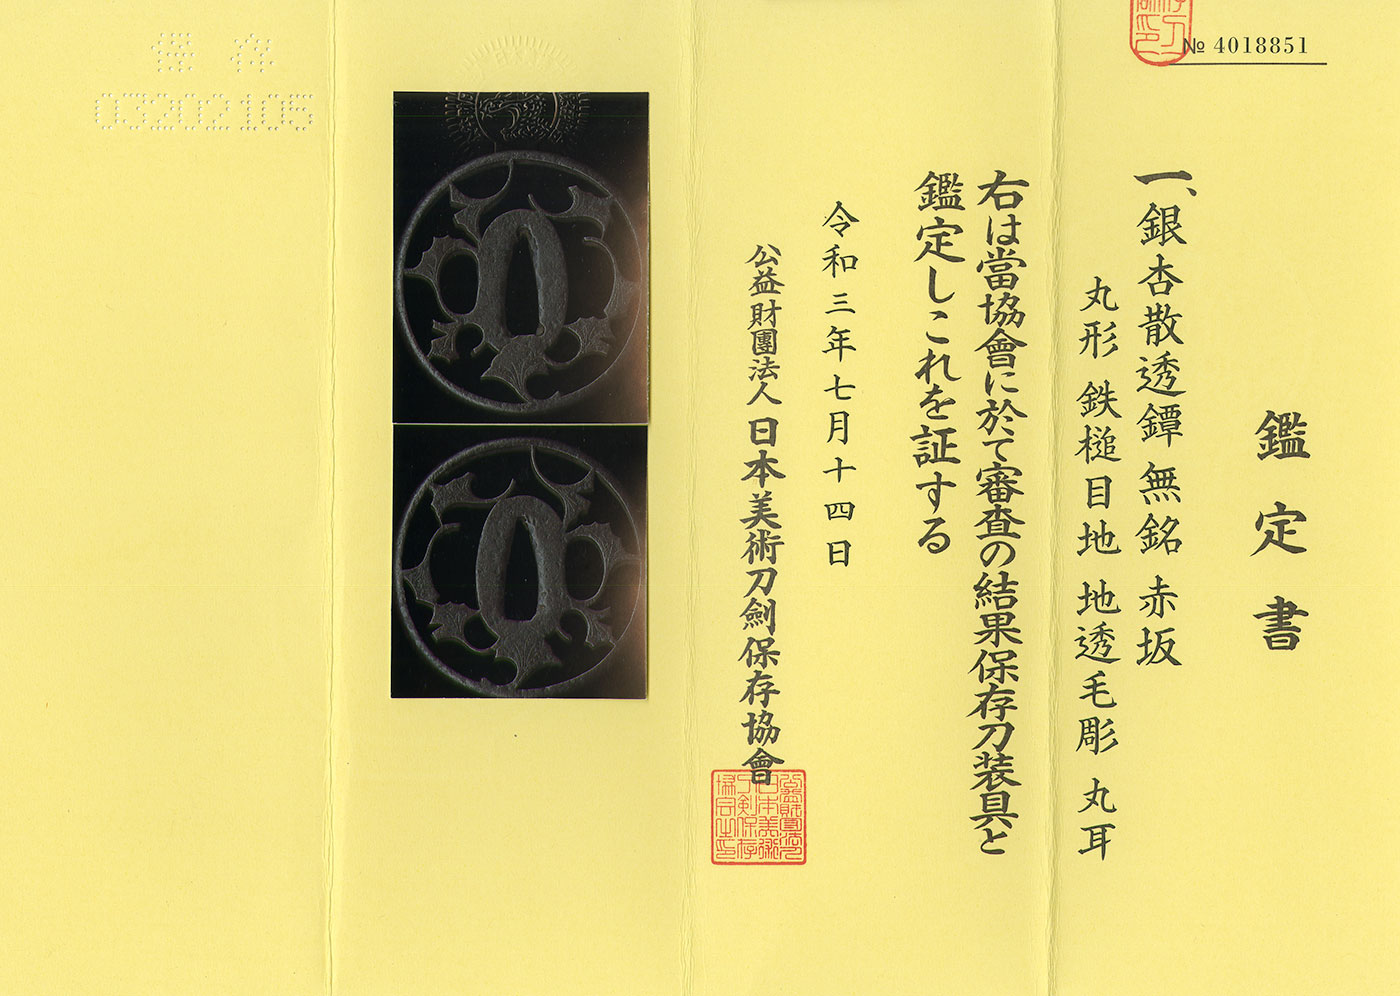 № 4018851
鑑定書
一、銀杏散透鐔 無銘 赤坂
丸形 鉄槌目地 地透毛彫 丸耳
右は當協會に於て審査の結果保存刀装具と
鑑定しこれを証する
令和三年七月十四日
公益財團法人 日本美術刀劍保存協會
保存
03202105